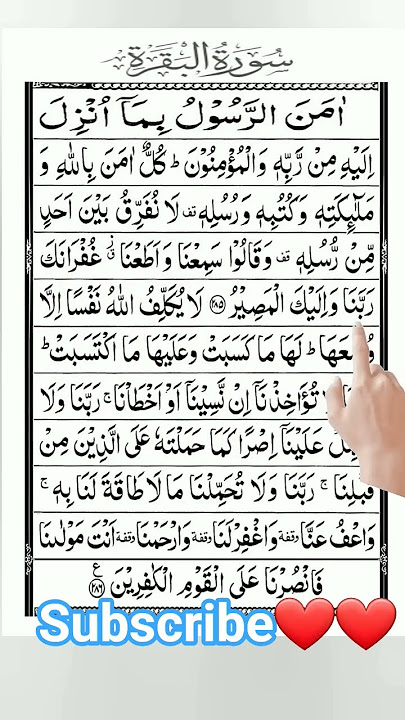 سُورَةُ الْبَقَرَةِ
اٰمَنَ الرَّسُوْلُ بِمَاۤ اُنْزِلَ
اِلَيْهِ مِنْ رَّبِّهٖ وَالْمُؤْمِنُوْنَ ؕ كُلٌّ اٰمَنَ بِاللّٰهِ وَ
مَلٰٓئِكَتِهٖ وَكُتُبِهٖ وَرُسُلِهٖ قف لَا نُفَرِّقُ بَيْنَ اَحَدٍ
مِّنْ رُّسُلِهٖ قف وَقَالُوْا سَمِعْنَا وَاَطَعْنَا ق غُفْرَانَكَ
رَبَّنَا وَاِلَيْكَ الْمَصِيْرُ ﴿۲۸۵﴾ لَا يُكَلِّفُ اللّٰهُ نَفْسًا اِلَّا
لَهَا مَا كَسَبَتْ وَعَلَيْهَا مَا اكْتَسَبَتْ ؕ
تُؤَاخِذْنَاۤ اِنْ نَّسِيْنَاۤ اَوْ اَخْطَاْنَا ۚ رَبَّنَا وَلَا
عَلَيْنَاۤ اِصْرًا كَمَا حَمَلْتَهٗ عَلَى الَّذِيْنَ مِنْ
قَبْلِنَا ۚ رَبَّنَا وَلَا تُحَمِّلْنَا مَا لَا طَاقَةَ لَنَا بِهٖ ۚ
وَاعْفُ عَنَّا وقفة وَاغْفِرْ لَنَا وقفة وَارْحَمْنَا وقفة اَنْتَ مَوْلٰىنَا
فَانْصُرْنَا عَلَى الْقَوْمِ الْكٰفِرِيْنَ ﴿۲۸۶﴾ ع
Subscribe❤️❤️